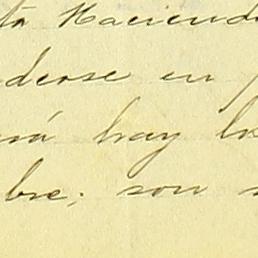 ta Hacienda
derse en
rá hay lo
bre; son